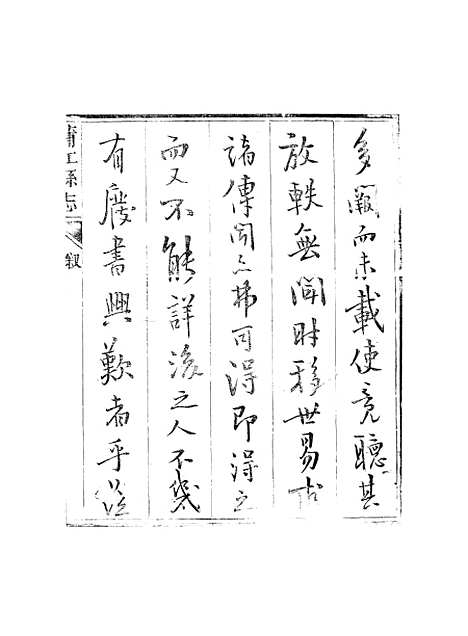 多闕而未載使竟聽其
放軼無聞時移世易求
諸傳聞亦弗可得即得之
而又不能詳後之人不幾
有廢書興歎者乎
蒲江縣志
叙